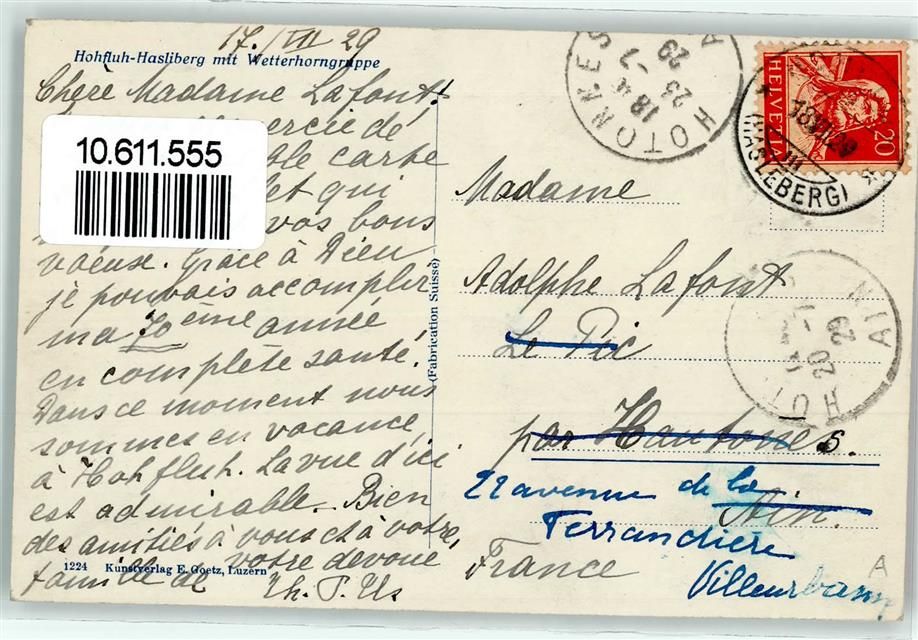 17. VII 29
Hohfluh-Hasliberg mit Wetterhorngruppe
Chère Madame Lafont,
10.611.555
carte
et qui
vos bons
voeuse. Grâce à Dieu
je pouvais accomplir
ma 70ème année
en complète santé.
Dans ce moment nous
sommes en vacance
à Hohfluh. La vue d'ici
est admirable. Bien
des amitiés à vous et à votre
famille de votre dévoué
1224 Kunstverlag E. Goetz, Luzern
(Fabrication Suisse)
HOTONNES
18 4
23 -7
29
HELVETIA
20
18.VII.29
(HASLEBERG)
Madame
Adolphe Lafont
Le Pic
par Hautones.
Ain.
22 avenue de la
Ferrandiere
Villeurbann
France
HOT
AIN
20 -7
29
A